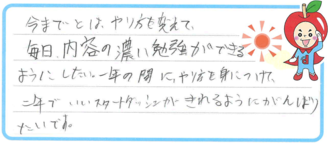 今までとは、やり方を変えて、
毎日、内容の濃い勉強ができる
ようにしたい。一年の間に、やり方を身につけて、
二年でいいスタートダッシュがきれるようにがんばり
たいです。